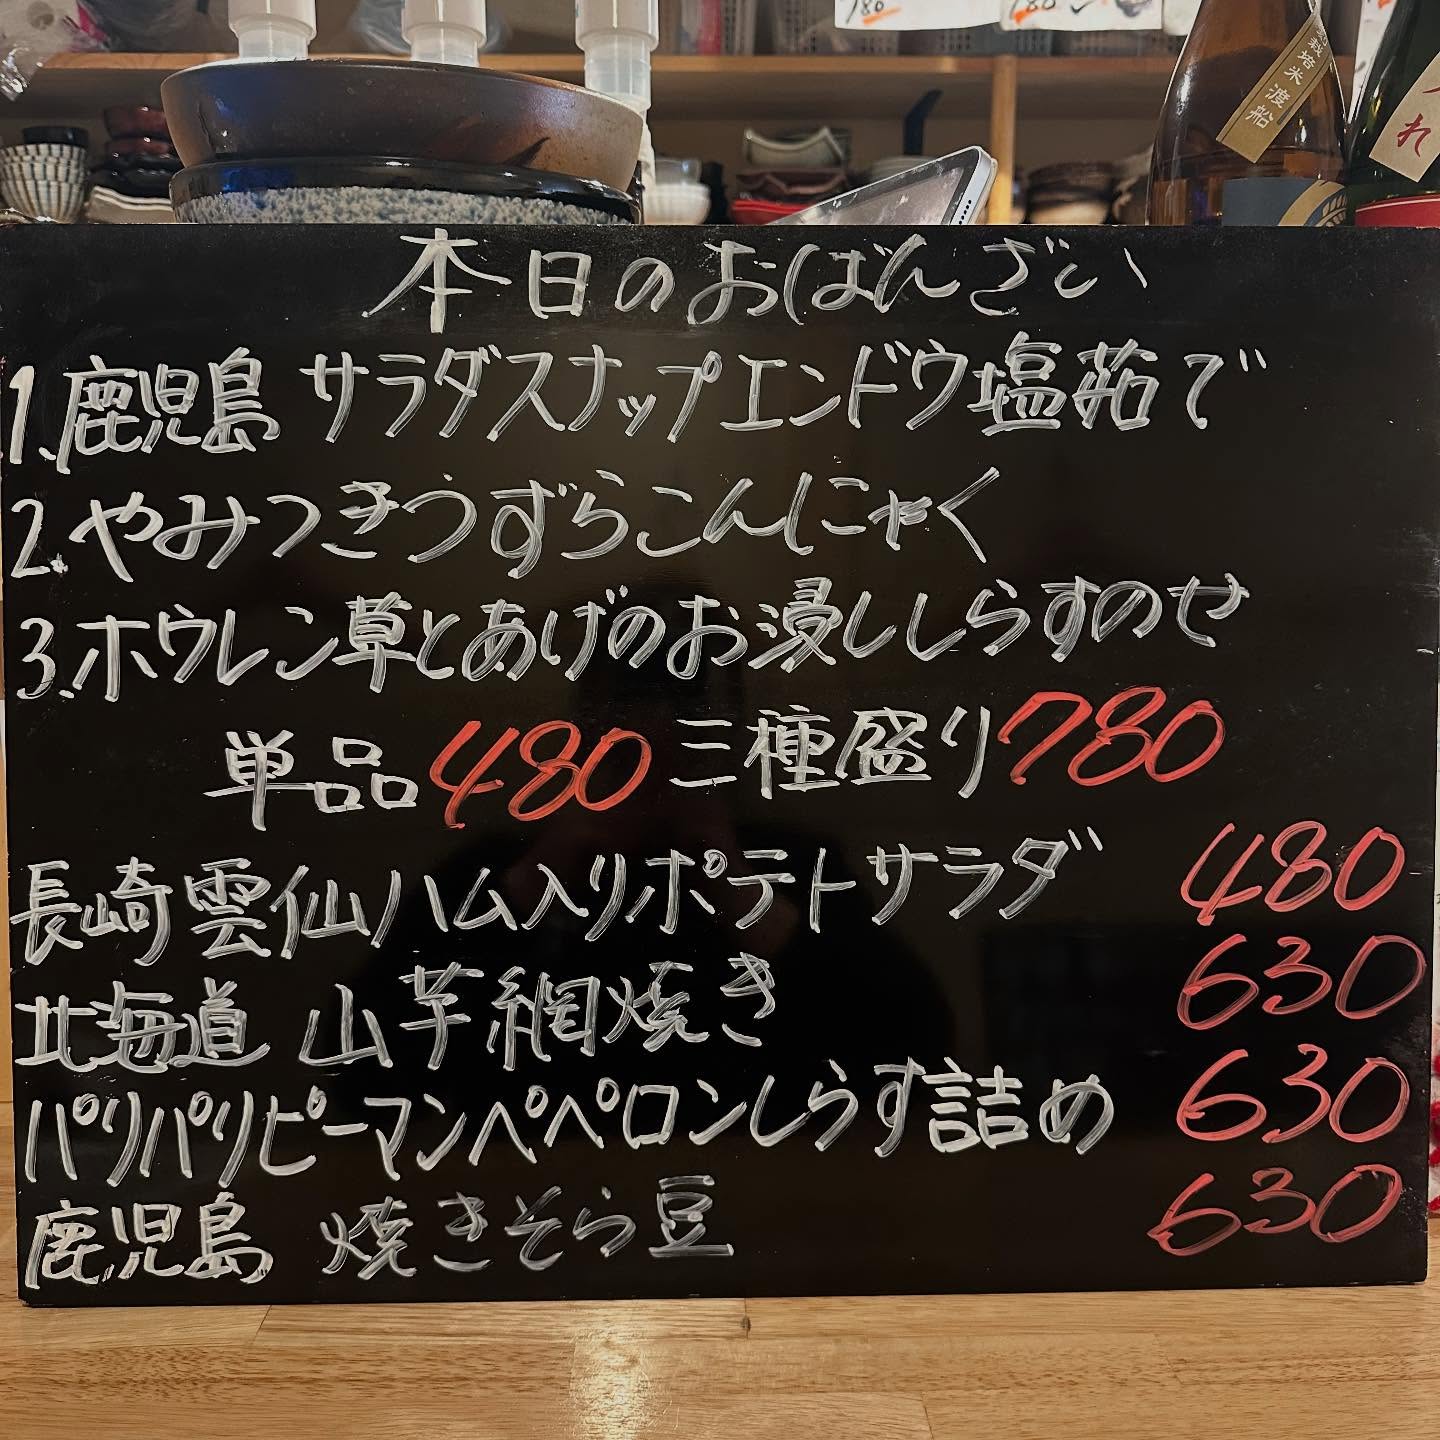 780
780
栽培米渡船
れ
本日のおばんざい
1.鹿児島 サラダスナップエンドウ塩茹で
2.やみつきうずらこんにゃく
3.ホウレン草とあげのお浸ししらすのせ
単品480 三種盛り780
長崎雲仙ハム入りポテトサラダ 480
北海道 山芋網焼き 630
パリパリピーマンペペロンしらす詰め 630
鹿児島 焼きそら豆 630